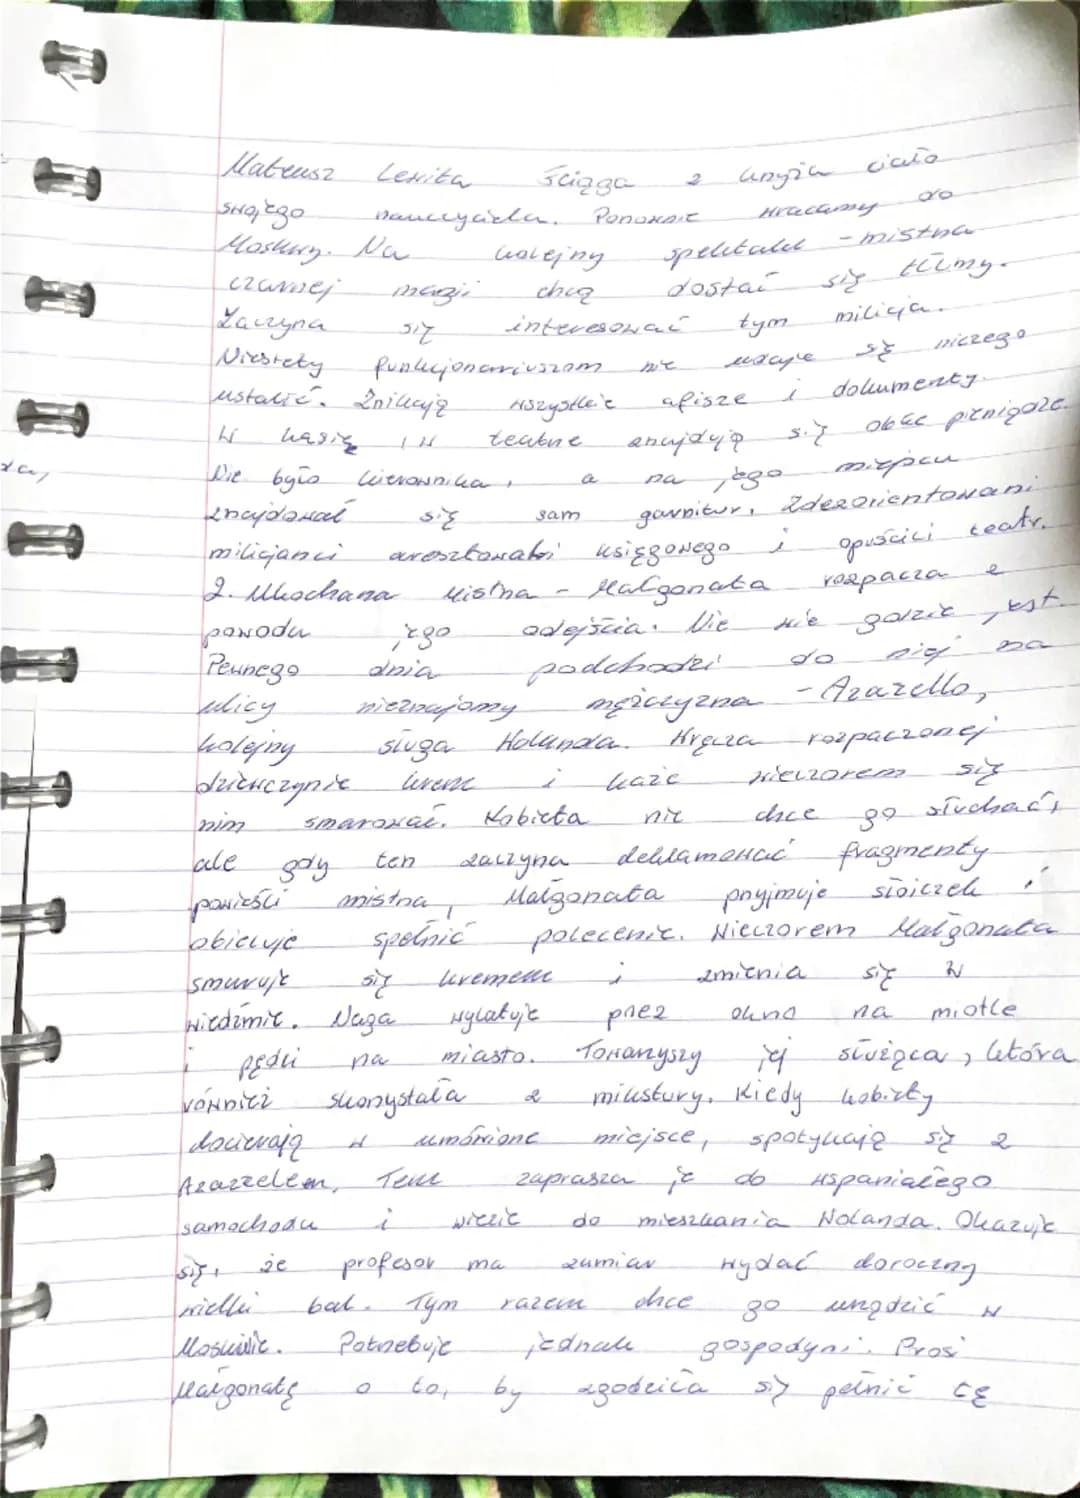 Mateusz Lewita ściąga z krzyża ciało
swojego nauczyciela. Ponownie wracamy do
Moskwy. Na kolejny spektakl - mistrza
czarnej magii chcą dostać się tłumy.
Zaczyna się interesować tym milicja.
Niestety funkcjonariuszom nie udaje się niczego
ustalić. Znikają wszystkie afisze i dokumenty.
W kasie, w teatrze znajdują się obce pieniądze.
Nie było kierownika, a na jego miejscu
znajdował się sam garnitur. Zdezorientowani
milicjanci aresztowali księgowego i opuścili teatr.
2. Ukochana Mistrza - Małgorzata rozpacza z
powodu jego odejścia. Nie wie gdzie jest.
Pewnego dnia podchodzi do niej na
ulicy nieznajomy mężczyzna - Azazello,
kolejny sługa Wolanda. Wręcza rozpaczonej
dziewczynie krem i każe wieczorem się
nim smarować. Kobieta nie chce go słuchać,
ale gdy ten zaczyna deklamować fragmenty
powieści mistrza, Małgorzata przyjmuje słoiczek i
obiecuje spełnić polecenie. Wieczorem Małgorzata
smaruje się kremem i zmienia się w
wiedźmie. Naga wylatuje przez okno na miotle
i pędzi na miasto. Towarzyszy jej służąca, która
również skorzystała z mikstury. Kiedy kobiety
docierają w umówione miejsce, spotykają się z
Azazzelem. Ten zaprasza je do wspaniałego
samochodu i wiezie do mieszkania Wolanda. Okazuje
się, że profesor ma zamiar wydać doroczny
wielki bal. Tym razem chce go urządzić w
Moskwie. Potrzebuje jednak gospodyni. Prosi
Małgorzatę o to, by zgodziła się pełnić tę